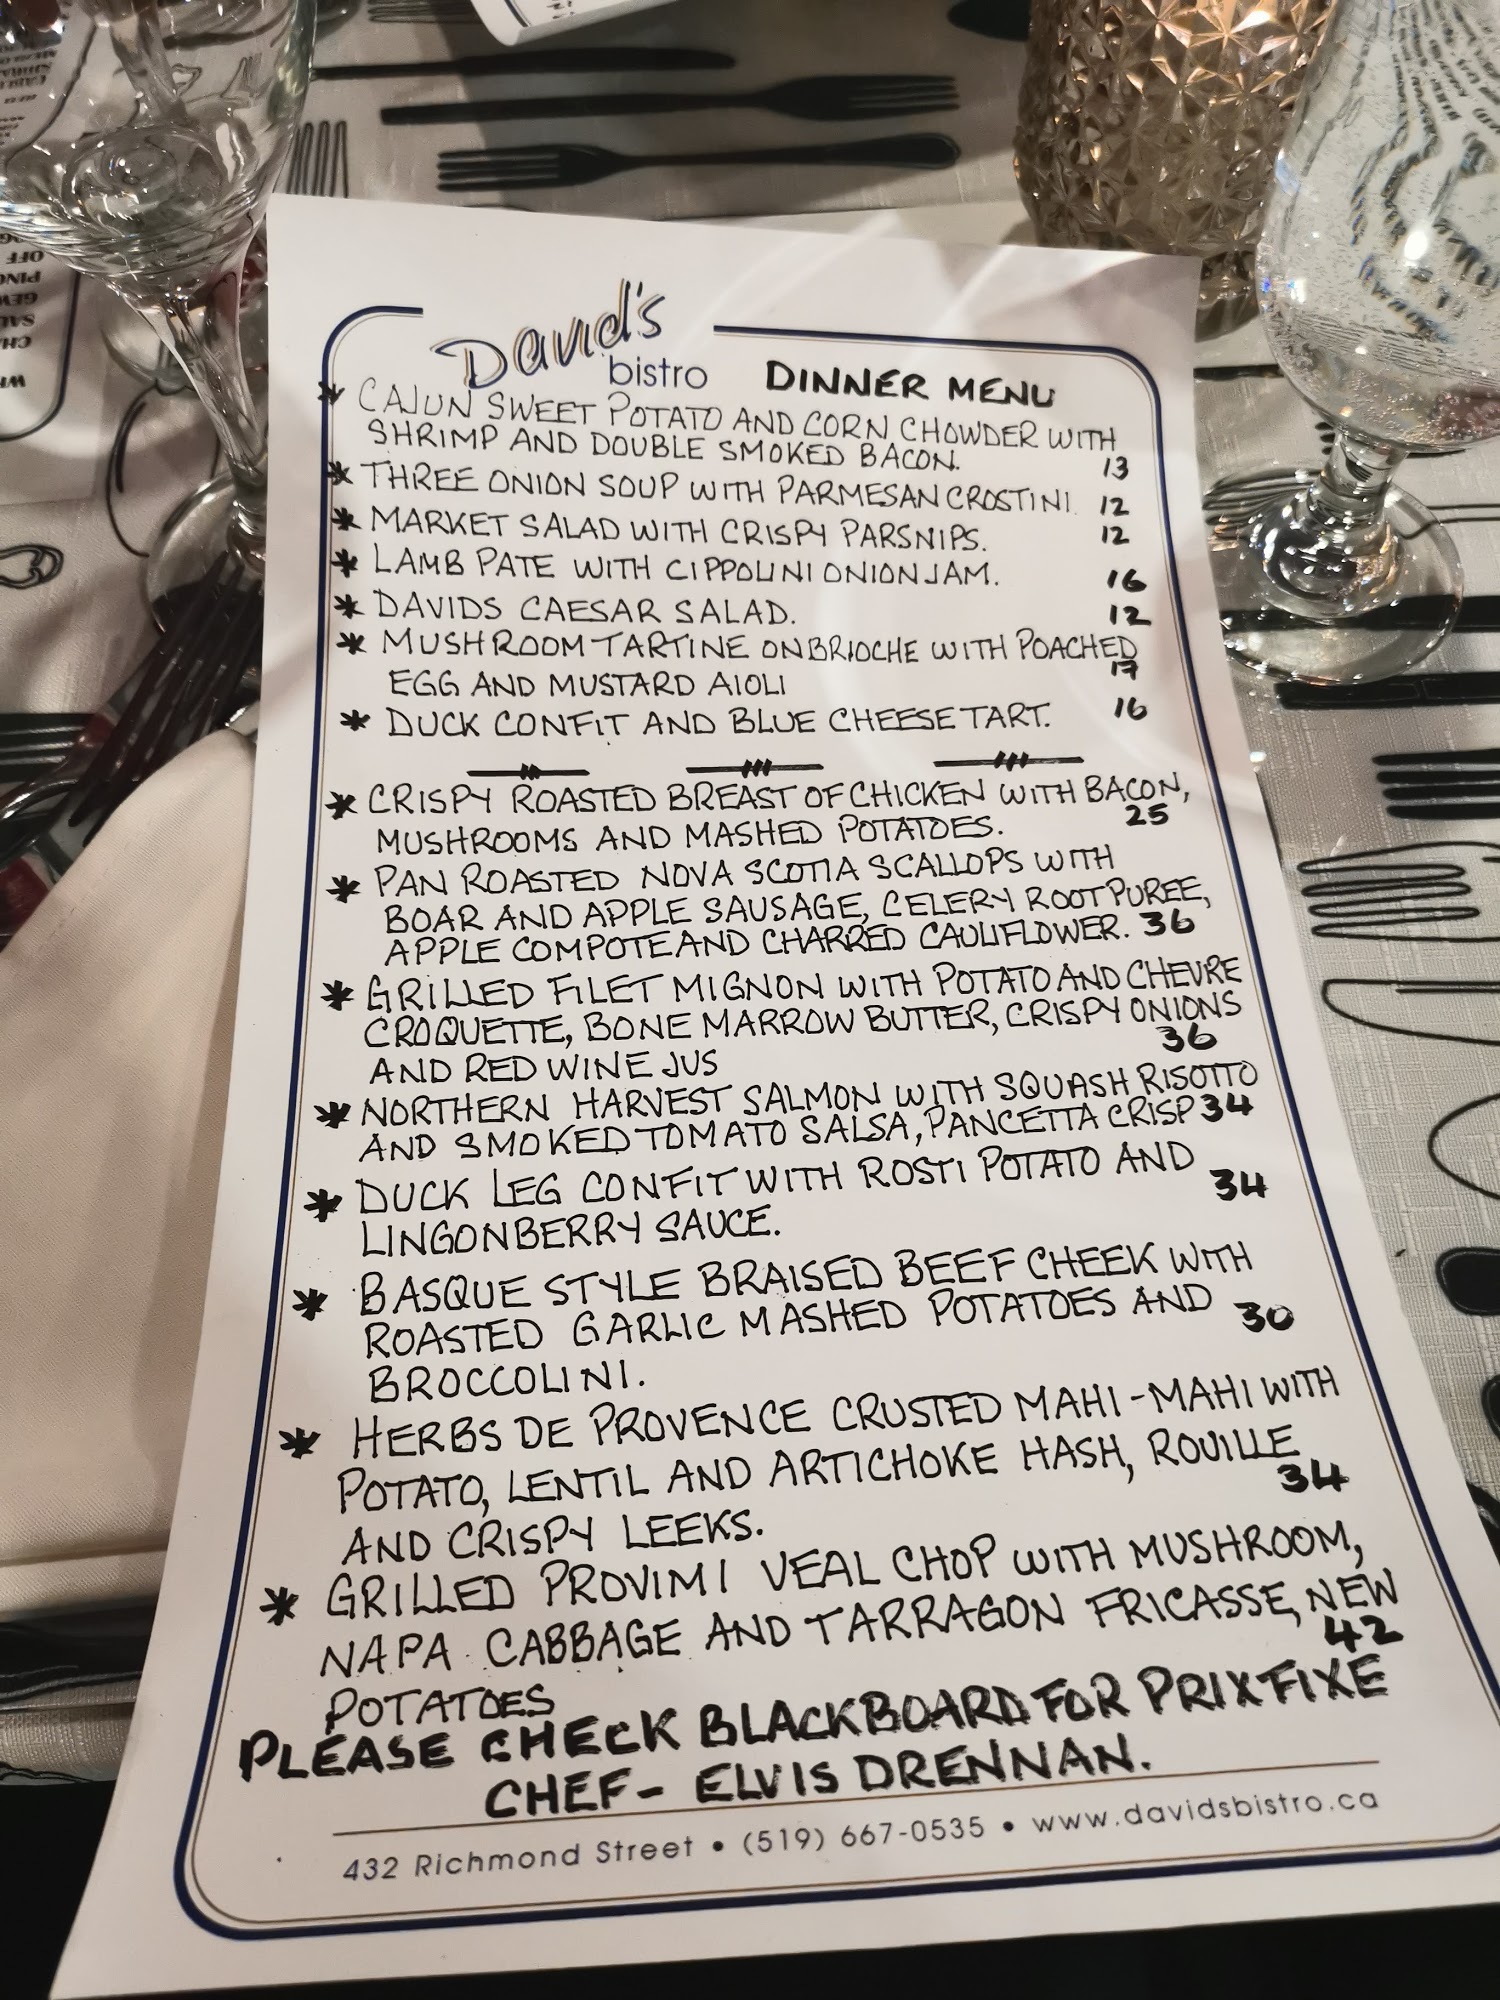 David's
bistro DINNER MENU
* CAJUN SWEET POTATO AND CORN CHOWDER WITH
SHRIMP AND DOUBLE SMOKED BACON. 13
* THREE ONION SOUP WITH PARMESAN CROSTINI 12
* MARKET SALAD WITH CRISPY PARSNIPS. 12
* LAMB PATE WITH CIPPOLINI ONION JAM. 16
* DAVIDS CAESAR SALAD. 12
* MUSHROOM TARTINE ON BRIOCHE WITH POACHED
EGG AND MUSTARD AIOLI 17
* DUCK CONFIT AND BLUE CHEESE TART. 16
* CRISPY ROASTED BREAST OF CHICKEN WITH BACON,
MUSHROOMS AND MASHED POTATOES. 25
* PAN ROASTED NOVA SCOTIA SCALLOPS WITH
BOAR AND APPLE SAUSAGE, CELERY ROOT PUREE,
APPLE COMPOTE AND CHARRED CAULIFLOWER. 36
* GRILLED FILET MIGNON WITH POTATO AND CHEVRE
CROQUETTE, BONE MARROW BUTTER, CRISPY ONIONS
AND RED WINE JUS 36
* NORTHERN HARVEST SALMON WITH SQUASH RISOTTO
AND SMOKED TOMATO SALSA, PANCETTA CRISP 34
* DUCK LEG CONFIT WITH ROSTI POTATO AND
LINGONBERRY SAUCE. 34
* BASQUE STYLE BRAISED BEEF CHEEK WITH
ROASTED GARLIC MASHED POTATOES AND 30
BROCCOLINI.
* HERBS DE PROVENCE CRUSTED MAHI-MAHI WITH
POTATO, LENTIL AND ARTICHOKE HASH, ROUILLE
AND CRISPY LEEKS. 34
* GRILLED PROVIMI VEAL CHOP WITH MUSHROOM,
NAPA CABBAGE AND TARRAGON FRICASSE, NEW
POTATOES 42
PLEASE CHECK BLACKBOARD FOR PRIX FIXE
CHEF- ELVIS DRENNAN.
432 Richmond Street • (519) 667-0535 • www.davidsbistro.ca
OFF